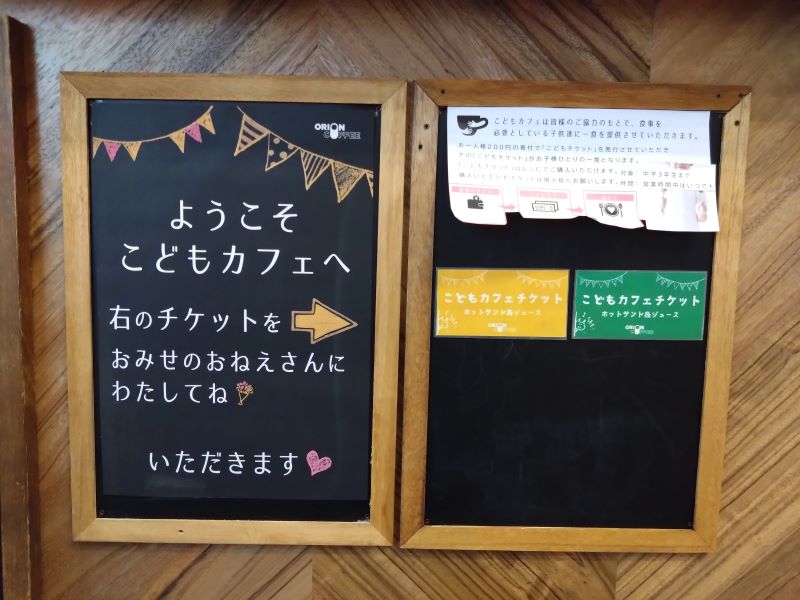 ORION
COFFEE
ようこそ
こどもカフェへ
右のチケットを
おみせのおねえさんに
わたしてね
いただきます
こどもカフェは皆様のご協力のもとで、食事を
必要としている子供達に一食を提供させていただきます。
お一人様200円の寄付で「こどもチケット」を発行させていただき
その「こどもチケット」がお子様ひとりの一食となります。
「こどもチケット」はレジにてご購入いただけます。対象 中学3年生まで
購入いただいたチケットは掲示板へお願いします。時間 営業時間中はいつでも
こどもカフェチケット
ホットサンド&ジュース
ORION
COFFEE
こどもカフェチケット
ホットサンド&ジュース
ORION
COFFEE